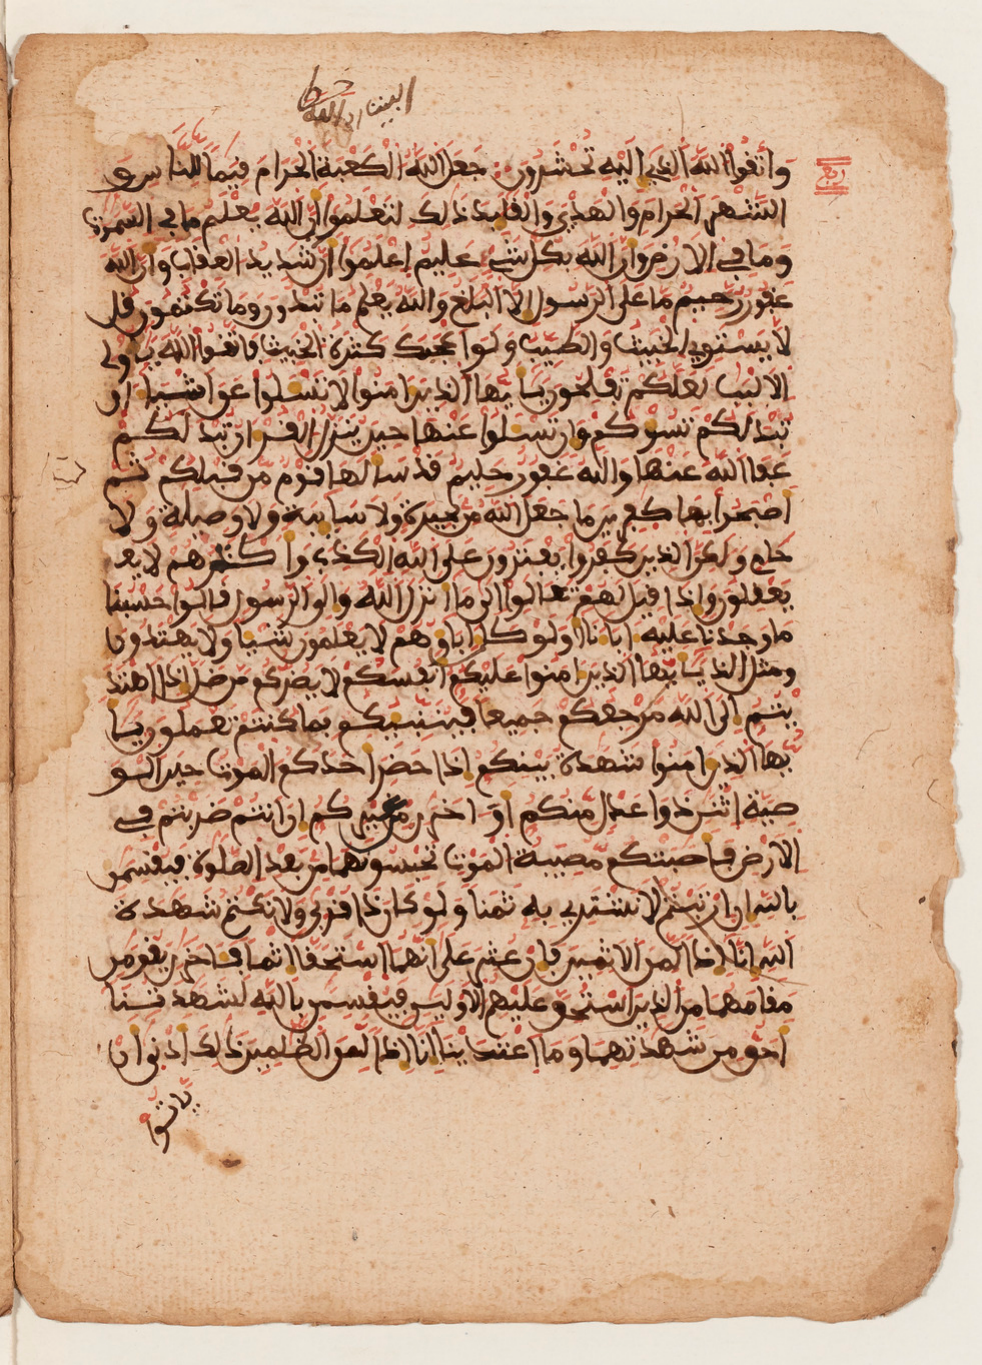 ربع
وٱتقوا ٱلله ٱلذي إليه تحشرون جعل ٱلله ٱلكعبة ٱلحرام قيما للناس و
الشهر الحرام والهدي والقلـٰيد ذلك لتعلموا أن الله يعلم ما في السموت
وما في الارض وان الله بكل شيء عليم اعلموا ان شديد العقاب وان الله
غفور رحيم ما على الرسول الا البلغ والله يعلم ما تبدون وما تكتمون قل
لا يستوي الخبيث والطيب ولوا عجبك كثرة الخبيث فاتقوا الله يـاولي
الالبب لعلكم تفلحون يـايها الذين امنوا لا تسلوا عن اشيا ان
تبد لكم تسوكم وان تسلوا عنها حين ينزل القران تبد لكم
عفا الله عنها والله غفور حليم قد سالها قوم من قبلكم ثم
اصبحوا بها كفرين ما جعل الله من بحيرة ولا سايبة ولا وصيلة ولا
حام ولكن الذين كفروا يفترون على الله الكذب وا كثرهم لا يع
يعقلون واذا قيل لهم تعالوا الى ما انزل الله والى الرسول قالوا حسبنا
ما وجدنا عليه ابانا اولو كان اباوهم لا يعلمون شيا ولا يهتدون
ومثل الذ يـايها الذين امنوا عليكم انفسكم لا يضركم من ضل اذا اهتد
يتم الى الله مرجعكم جميعا فينبيكم بما كنتم تعملون يـا
يها الذين امنوا شهدة بينكم اذا حضر احدكم الموت حين الو
صية اثنن ذوا عدل منكم او اخرن من غيركم ان انتم ضربتم في
الارض فاصبتكم مصيبة الموت تحبسونهما من بعد الصلوة فيقسمن
بالله ان ارتبتم لا نشتري به ثمنا ولو كان ذا قربى ولا نكتم شهدة
الله انا اذا لمن الاثمين فان عثر على انهما استحقا اثما فاخرن يقومن
مقامهما من الذين استحق عليهم الاوليين فيقسمن بالله لشهدتنا
احق من شهدتهما وما اعتدينا انا اذا لمن الظلمين ذلك ادنى ان
ياتوا